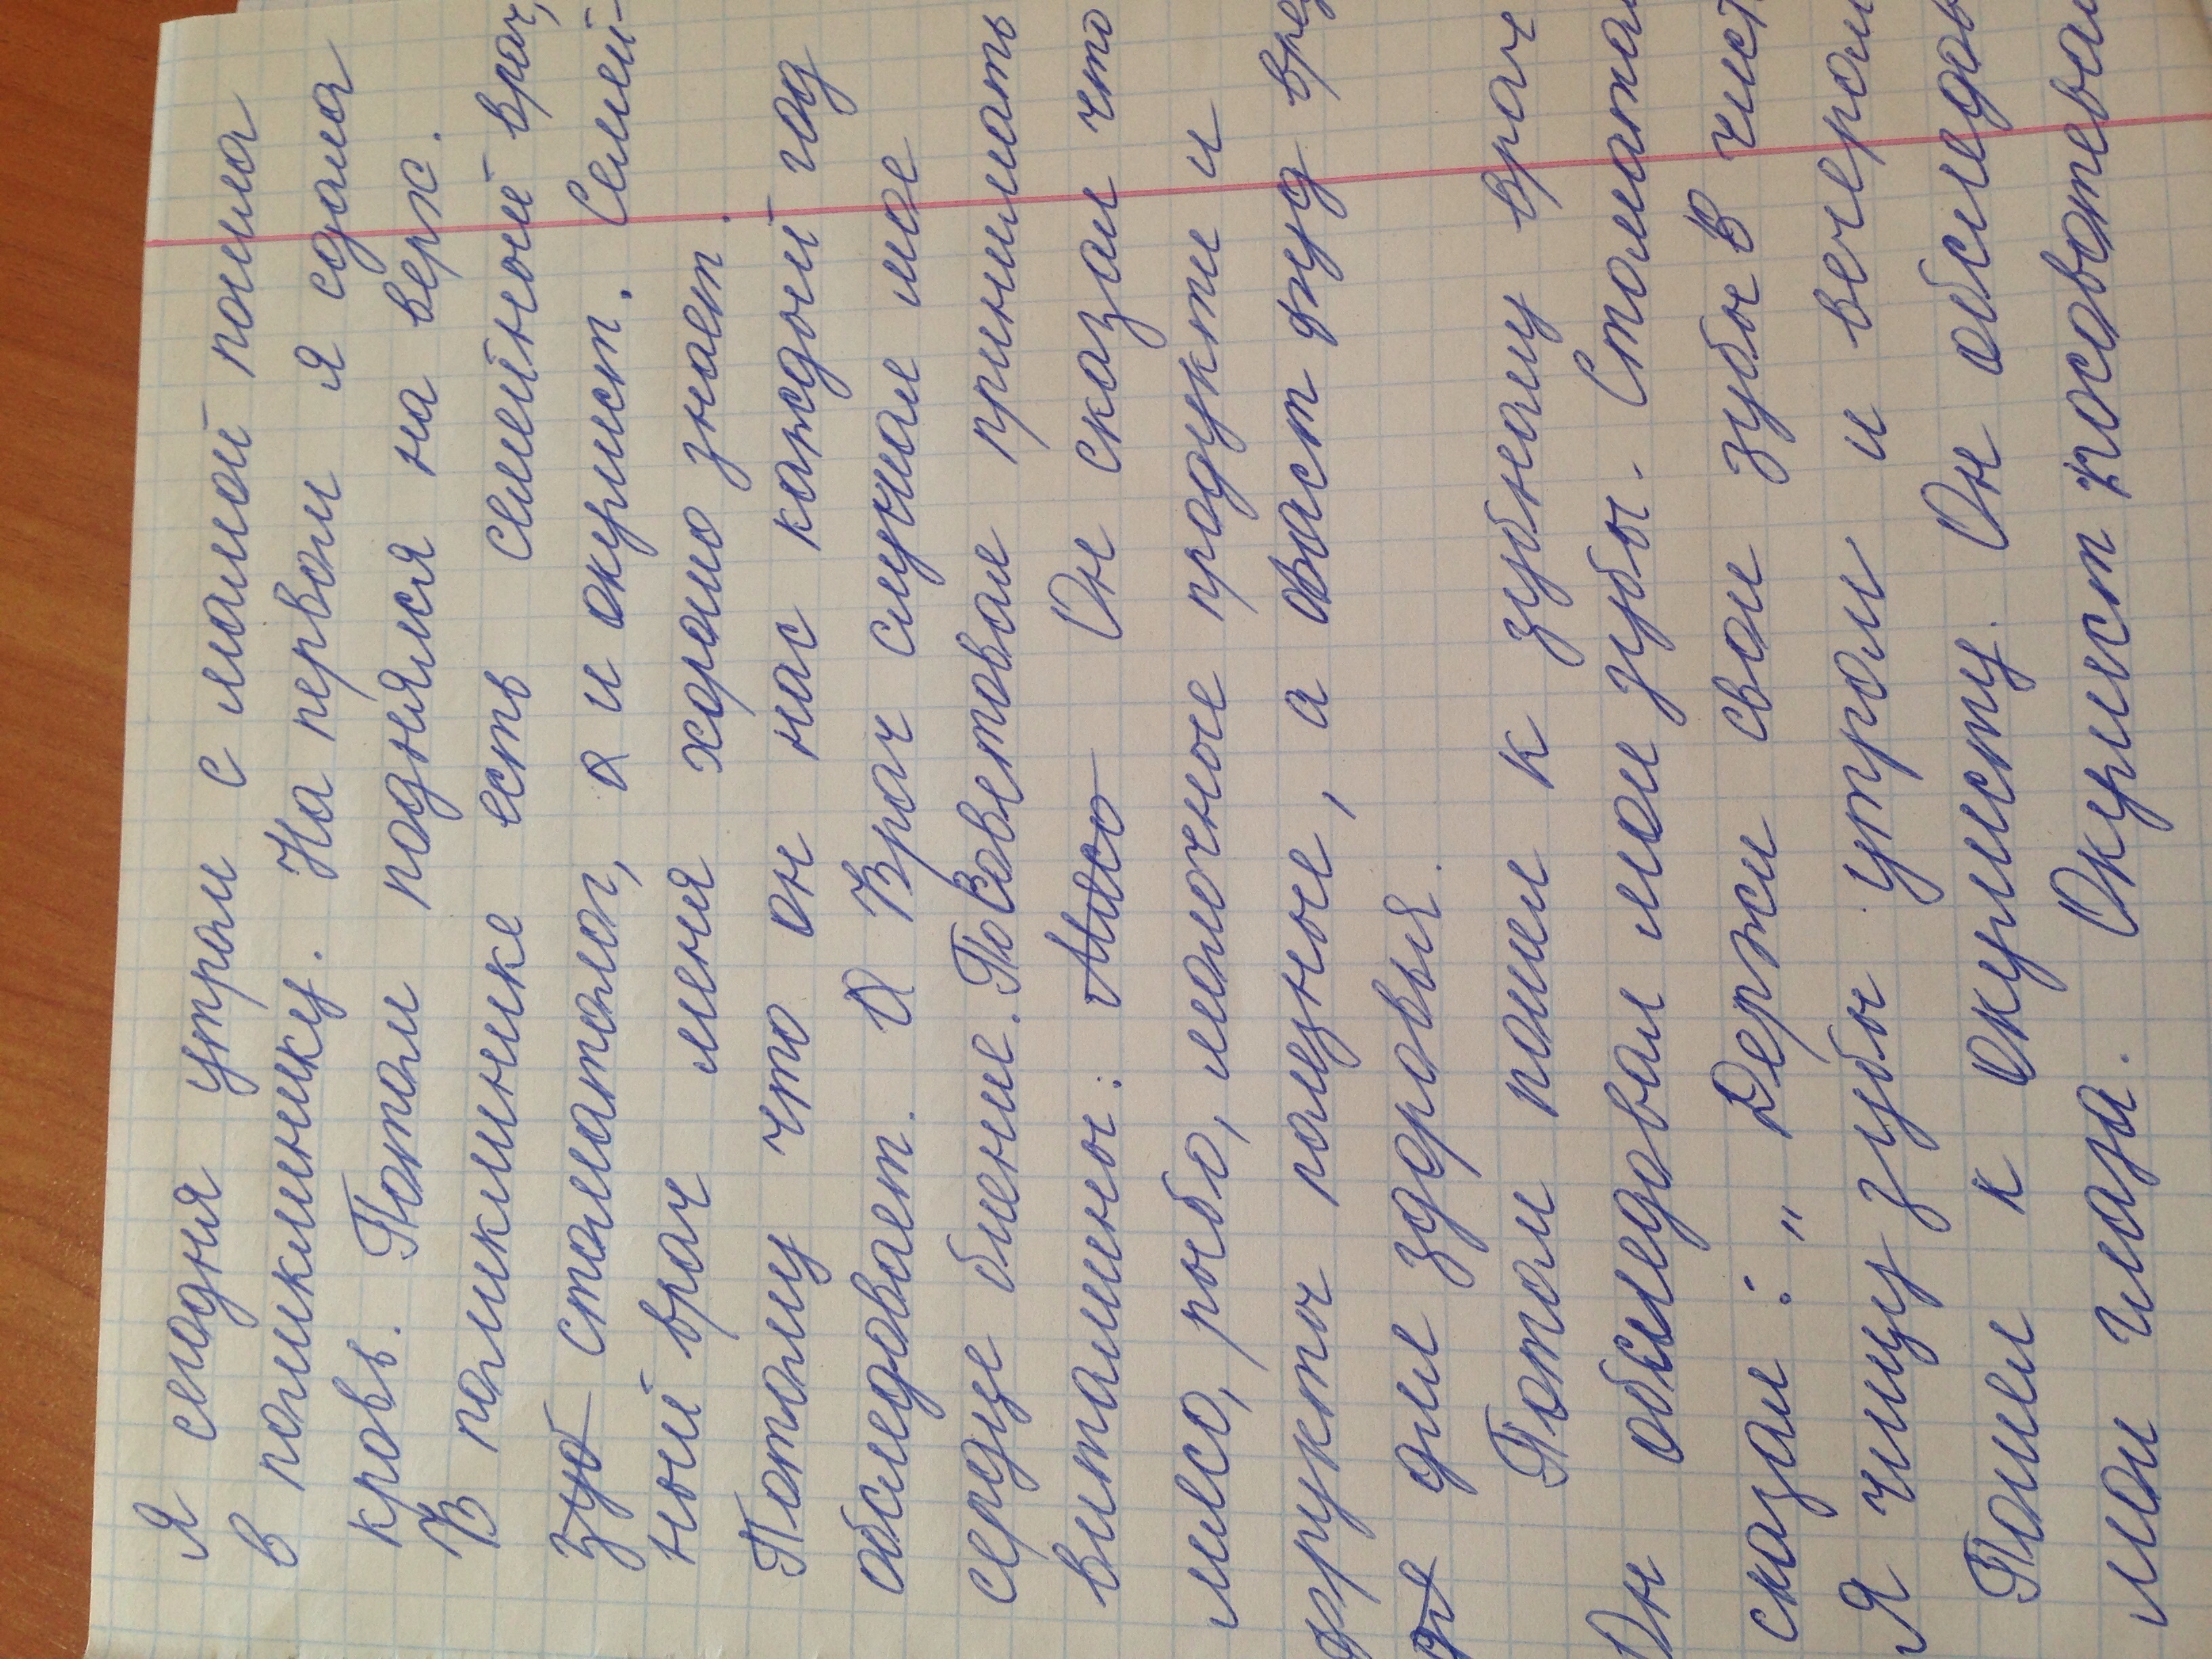 Я сегодня утром с мамой пошла
в поликлинику. На первом я сдала
кровь. Потом поднялся на верх.
В поликлинике есть семейный врач,
зуб стоматолог, а и окулист. Семей-
ный врач меня хорошо знает.
Потому что он нас каждый год
обследовает. Врач слушал мое
серце биение. Посоветовал принимать
витамины. Он сказал что
мясо, рыба, молочное продукти и
фрукты полезные, а фаст фуд
для здоровья.
Потом пошел к зубному врач
Он обследовал мои зубы. Стомато
сказал: „Держи свои зубы в чист
Я чищу зубы утром и вечером
Пошел к окулисту. Он обследов
мои глаза. Окулист посоветовал